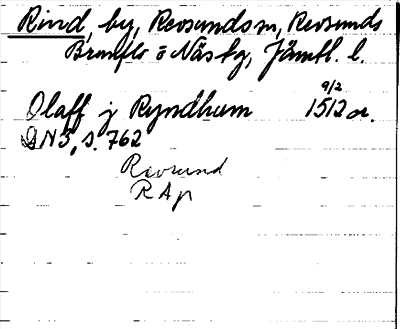 Rind, by, Revsunds sn, Revsunds
Brunflo o Näs tg, Jämtl. l.
Olaff j Ryndhem 9/2 1512 or.
DN 5, s. 762
Revsund
R A p